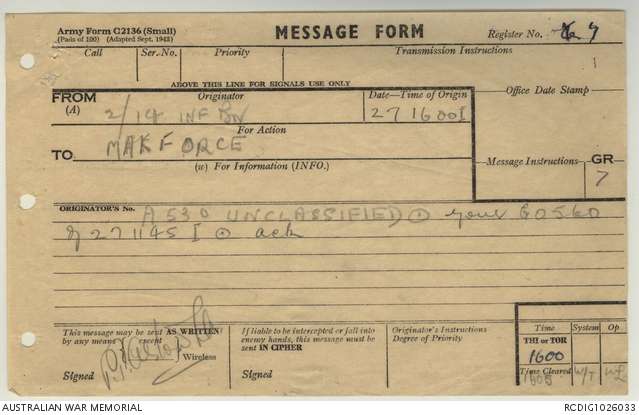 Army Form C2136 (Small)
(Pads of 100) (Adapted Sept. 1942)
MESSAGE FORM
Register No. 7
Call Ser. No. Priority Transmission Instructions
ABOVE THIS LINE FOR SIGNALS USE ONLY
FROM Originator Date—Time of Origin Office Date Stamp
(A) 2/14 INF BN 271600I
For Action
TO MAKFORCE
(w) For Information (INFO.) Message Instructions GR
7
ORIGINATOR'S No. A530 UNCLASSIFIED ⊙ your GO560
of 271145 I ⊙ ack
This message may be sent AS WRITTEN
by any means except
Wireless
Signed
If liable to be intercepted or fall into
enemy hands, this message must be
sent IN CIPHER
Signed
Originator's Instructions
Degree of Priority
Time System Op
THI or TOR
1600
Time Cleared
1605 W/T
AUSTRALIAN WAR MEMORIAL RCDIG1026033